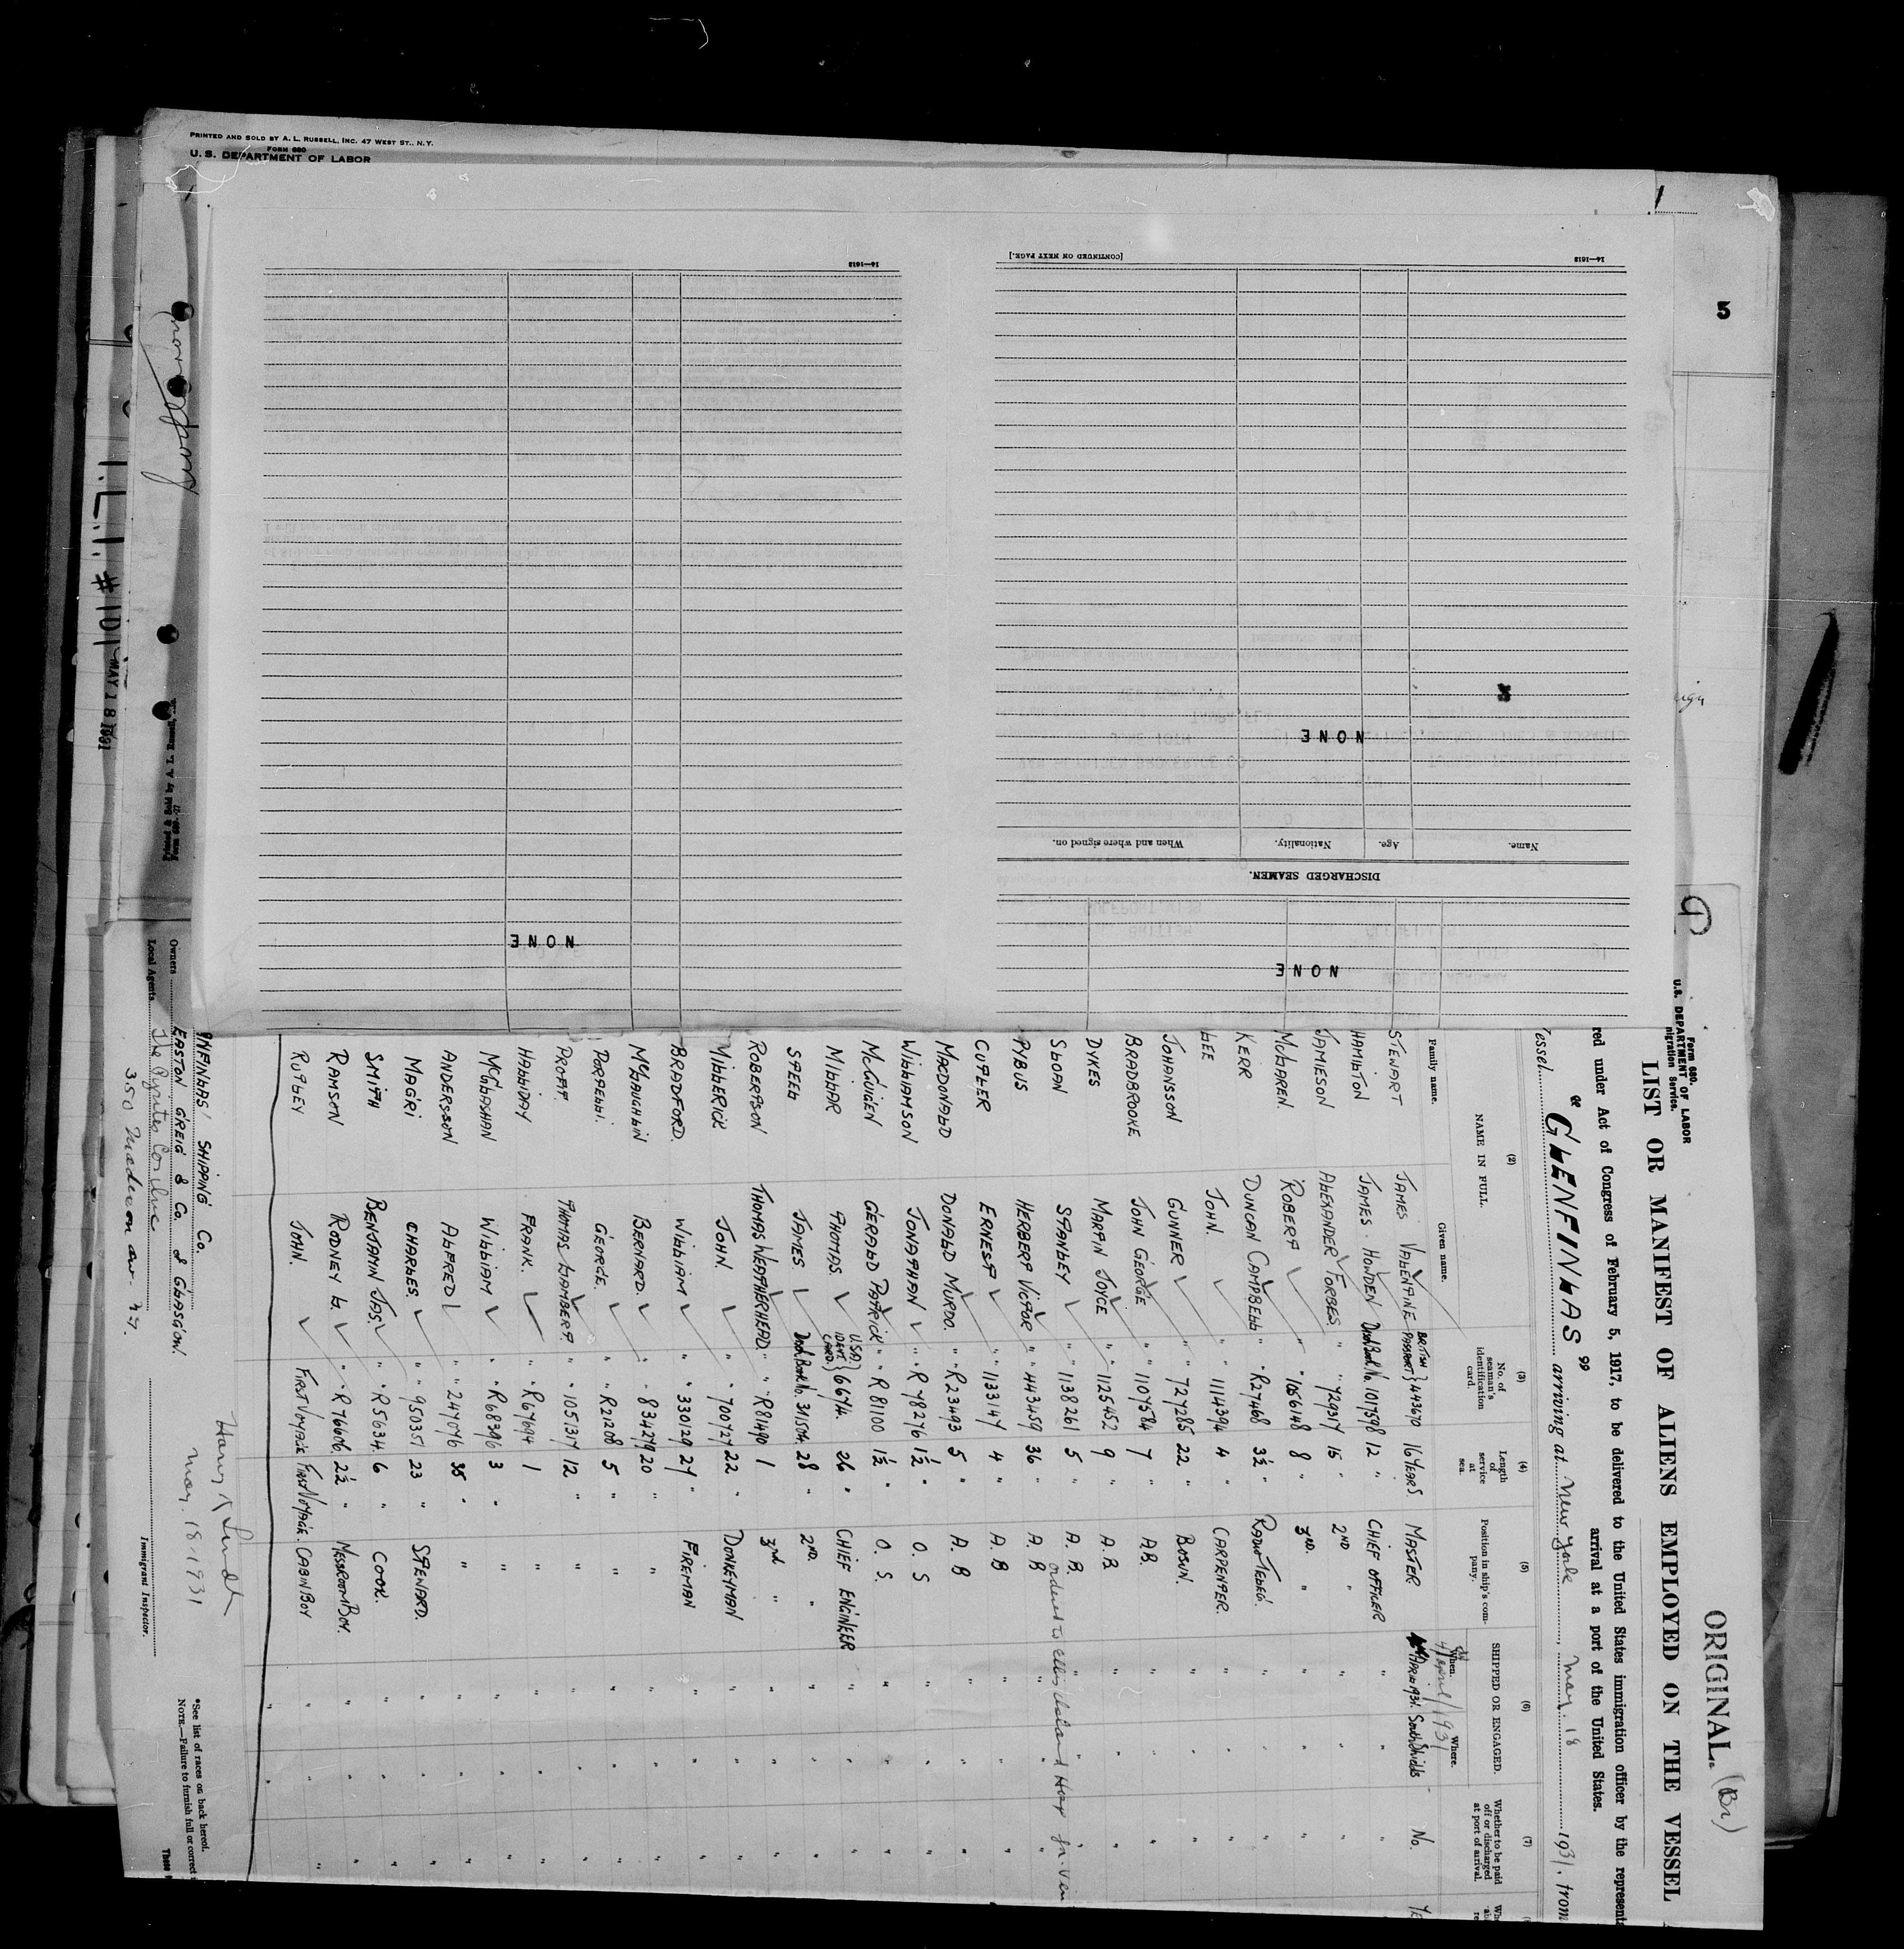 PRINTED AND SOLD BY A. L. RUSSELL, INC. 47 WEST ST., N.Y.
FORM 680
U. S. DEPARTMENT OF LABOR
5
14—1618
[CONTINUED ON NEXT PAGE.]
14—1618
NONE
Name. Age. Nationality. When and where signed on.
DISCHARGED SEAMEN.
NONE
NONE
I.L.I. # 101 MAY 18 1931
ORIGINAL. (Br)
Form 680.
U.S. DEPARTMENT OF LABOR
migration Service.
LIST OR MANIFEST OF ALIENS EMPLOYED ON THE VESSEL
red under Act of Congress of February 5, 1917, to be delivered to the United States immigration officer by the represent
arrival at a port of the United States.
essel "GLENFINLAS" arriving at New York, May. 18 1931, from
(2) (3) (4) (5) (6) (7)
NAME IN FULL. No. of seaman's identification card. Length of service at sea. Position in ship's company. SHIPPED OR ENGAGED. Whether to be paid off or discharged at port of arrival.
Family name. Given name. When. Where.
4/April/1931
STEWART JAMES VALENTINE BRITISH PASSPORT} 443670 16 YEARS. MASTER April 1931. South Shields No.
HAMILTON JAMES HOWDEN Disch Book No. 101758 12 " CHIEF OFFICER " " "
JAMIESON ALEXANDER FORBES " 72917 15 " 2ND " " " "
McLAREN. ROBERT " 1056148 8 " 3RD. " " " "
KERR DUNCAN CAMPBELL " R27468 3½ " RADIO TELEG. " " "
LEE JOHN. " 1114394 4 " CARPENTER. " " "
JOHANSSON GUNNER " " 727285 22 " BOSUN. " " "
BRADBROOKE JOHN GEORGE " " 1107584 7 " AB. " " "
DYKES MARTIN JOYCE " " 1125452 9 " A. B " " "
SLOAN STANLEY " " 1138261 5 " A. B. " " "
ordered to Ellis Island Hosp for
PYBUS HERBERT VICTOR " " 443459 36 " A. B " " "
CUTLER ERNEST " " 1133147 4 " A. B " " "
MACDONALD DONALD MURDO. " " R23493 5 " A. B " " "
WILLIAMSON JONATHAN " " R78276 1½ " O. S " " "
McGUIGEN GERALD PATRICK " " R81100 1½ " O. S. " " "
MILLAR THOMAS. U.S.A. IDENT. CARD.} 66714. 26 " CHIEF ENGINEER " " "
STEEL JAMES Disch. Book No. 31504. 28 " 2ND. " " " "
ROBERTSON THOMAS WEATHERHEAD. " " R81490 1 " 3rd " " " "
MILLERICK JOHN. " " 700727 22 " DONKEYMAN " " "
BRADFORD. WILLIAM " " 330129 27 " FIREMAN " " "
McLAUGHLIN BERNARD. " " 834279 20 " " " " "
PORTELLI. GEORGE. " " R21208 5 " " " " "
PROFT. THOMAS LAMBERT. " " 1051317 12 " " " " "
HALLIDAY FRANK. " " R67694 1 " " " " "
McGLASHAN WILLIAM " " R68396 3 " " " " "
ANDERSSON ALFRED " " 247076 35 " " " " "
MAGRI CHARLES " " 950351 23 " STEWARD. " " "
SMITH BENJAMIN JAS. " " R5634. 6 " COOK. " " "
RAMSON RODNEY L. " " R76606 2½ " MESSROOM BOY. " " "
RUTLEY JOHN. FIRST VOYAGE FIRST VOYAGE. CABIN BOY " " "
Harry R
May. 18-1931
Immigrant Inspector.
NFINLAS' SHIPPING Co.
Owners EASTON GREIG & Co. of GLASGOW.
Local Agents The Pyrites Co. Inc
350 Madison av. N.Y.
*See list of races on back hereof.
NOTE.—Failure to furnish full or correct
These